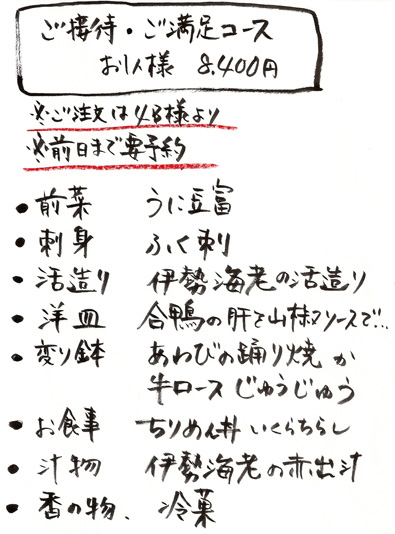 ご接待・ご満足コース
お1人様 8,400円
※ご注文は4名様より
※前日まで要予約
• 前菜 うに豆富
• 刺身 ふく刺
• 活造り 伊勢海老の活造り
• 洋皿 合鴨の肝を山椒ソースで…
• 変り鉢 あわびの踊り焼 か
牛ロースじゅうじゅう
• お食事 ちりめん丼 いくらちらし
• 汁物 伊勢海老の赤出汁
• 香の物、 冷菓